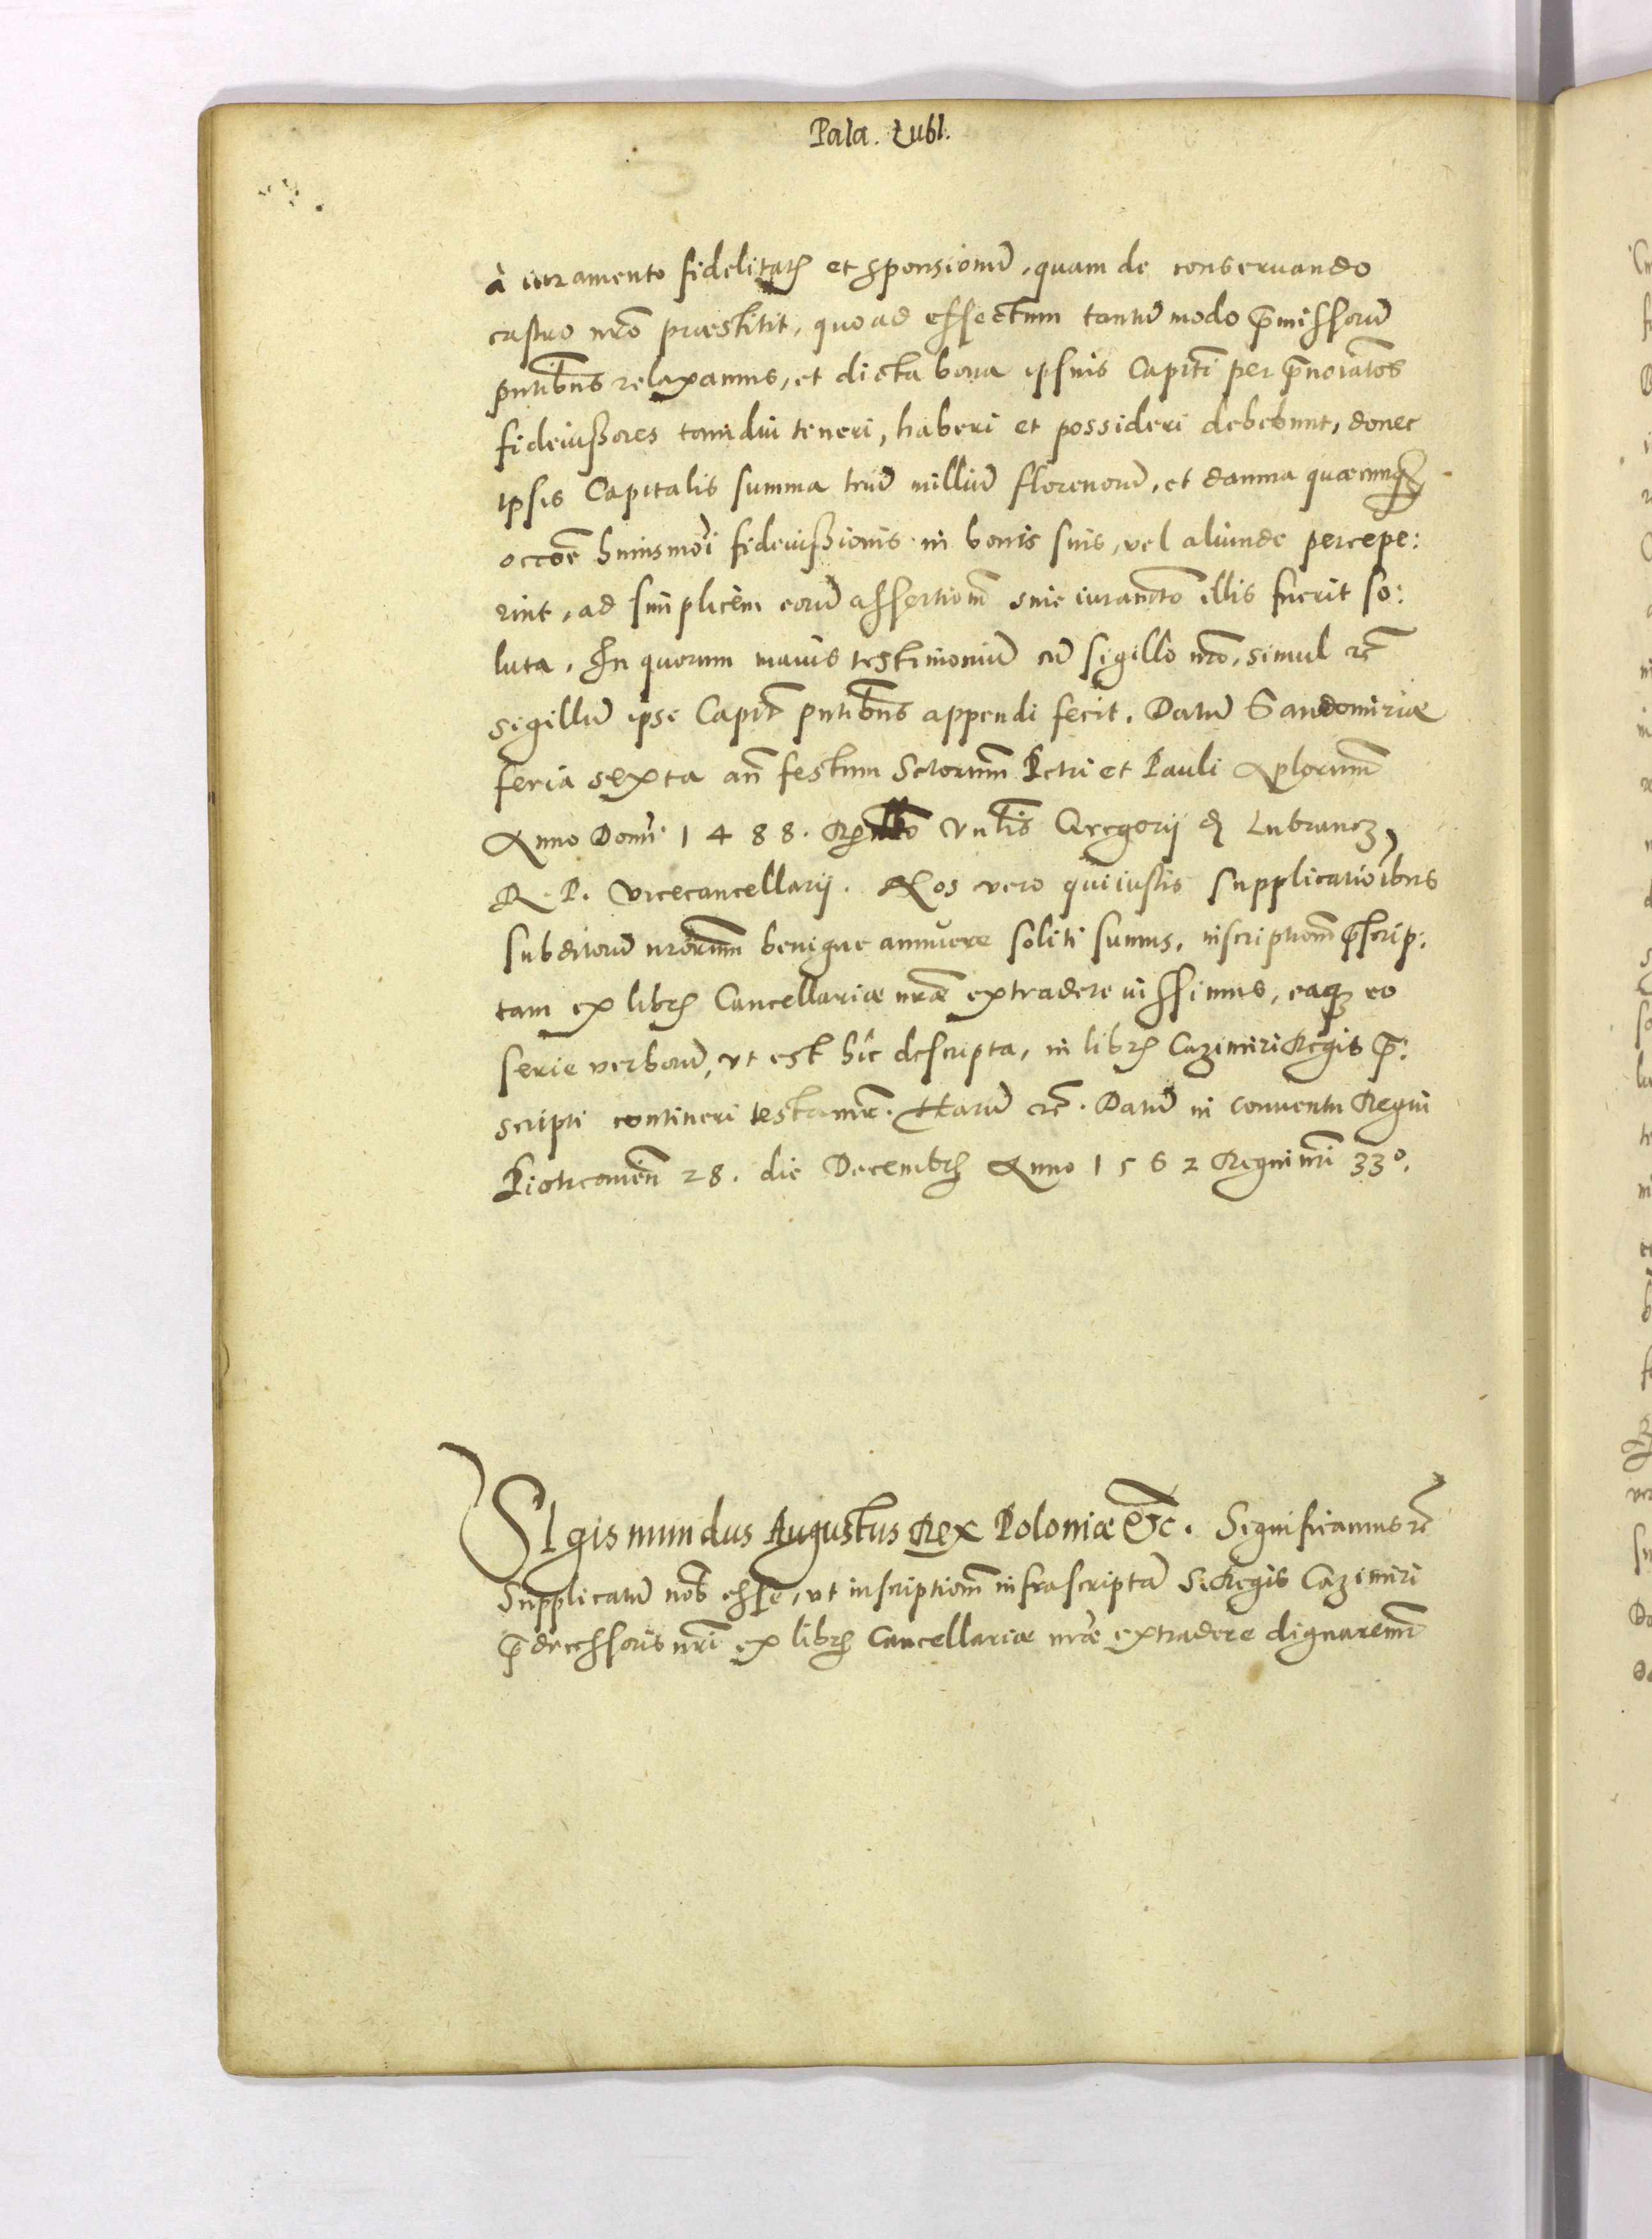 Pala. Lubl.
à iuramento fidelitatꝭ et sponsionũ, quam de conseruando
castro nr̃o præstitit, quo ad effectum tantũmodo p̃missorũ
pñtibus relaxamus, et dicta bona ipsius Capit̃i per p̃noĩatos
fideiussores tamdiu teneri, haberi et possideri debebunt, donec
ipsis Capitalis summa triũ milliũ florenorũ, et damna quæcunqꝫ
occõe huiusmõi fideiussionis in bonis suis, vel aliunde percepe:
rint, ad simplicem eorũ assertionẽ sine iuramẽto illis fuerit so:
luta. In quorum maius testimoniũ cũ sigillo nr̃o, simul etc̃
sigillũ ipse Capit̃ pñtibus appendi fecit. Datũ Sandomiriæ
feria sexta añ festum Sctorum Petri et Pauli Aplorum
Anno Domĩ 1488. Vnl̃is Gregorij de Lubrancz
R. P. Vicecancellarij. Nos vero qui iustis supplicatiõibus
subditorũ nr̃orum benigne annuere soliti sumus, inscriptionẽ p̃scrip:
tam ex librꝭ Cancellariæ nr̃æ extradere iussimus, eaqꝫ eo
serie verborũ, vt est hîc descripta, in librꝭ Cazimiri Regis p̃:
scripti contineri testamur̃. Harũ etc̃. Datũ in conuentu Regni
Piotrcouieñ 28. die Decembrꝭ Anno 1562 Regni nr̃i 33º.
SIgismundus Augustus Rex Poloniæ &c. Significamus etc̃
Supplicatũ nob̃ esse, vt inscriptionẽ infrascriptã S. Regis Cazimiri
p̃decessoris nr̃i ex librꝭ Cancellariæ nr̃æ extradere dignaremur̃